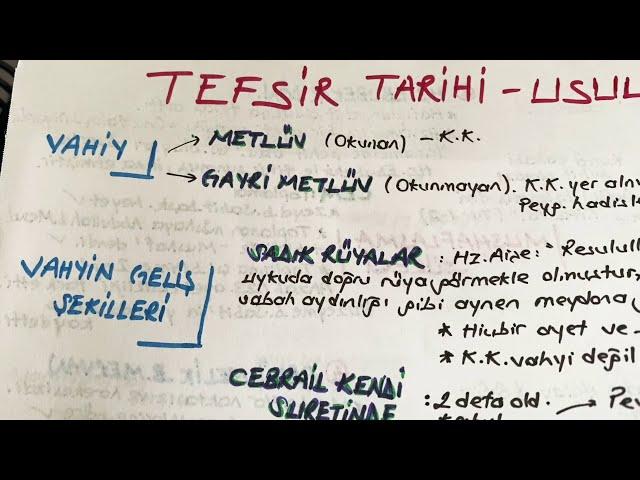 TEFSİR TARİHİ - USUL
VAHİY
→ METLÜV (Okunan) - K.K.
→ GAYRİ METLÜV (Okunmayan). K.K. yer alm
Peyg. hadisl
VAHYİN GELİŞ
ŞEKİLLERİ
SADIK RÜYALAR : Hz. Aişe: " Resulull
uykuda doğru rüya görmekle olmuştur,
sabah aydınlığı gibi aynen meydana g
* Hiçbir ayet ve
* K.K. vahyi değil
CEBRAİL KENDİ
SURETİNDE
: 2 defa old. → Pe